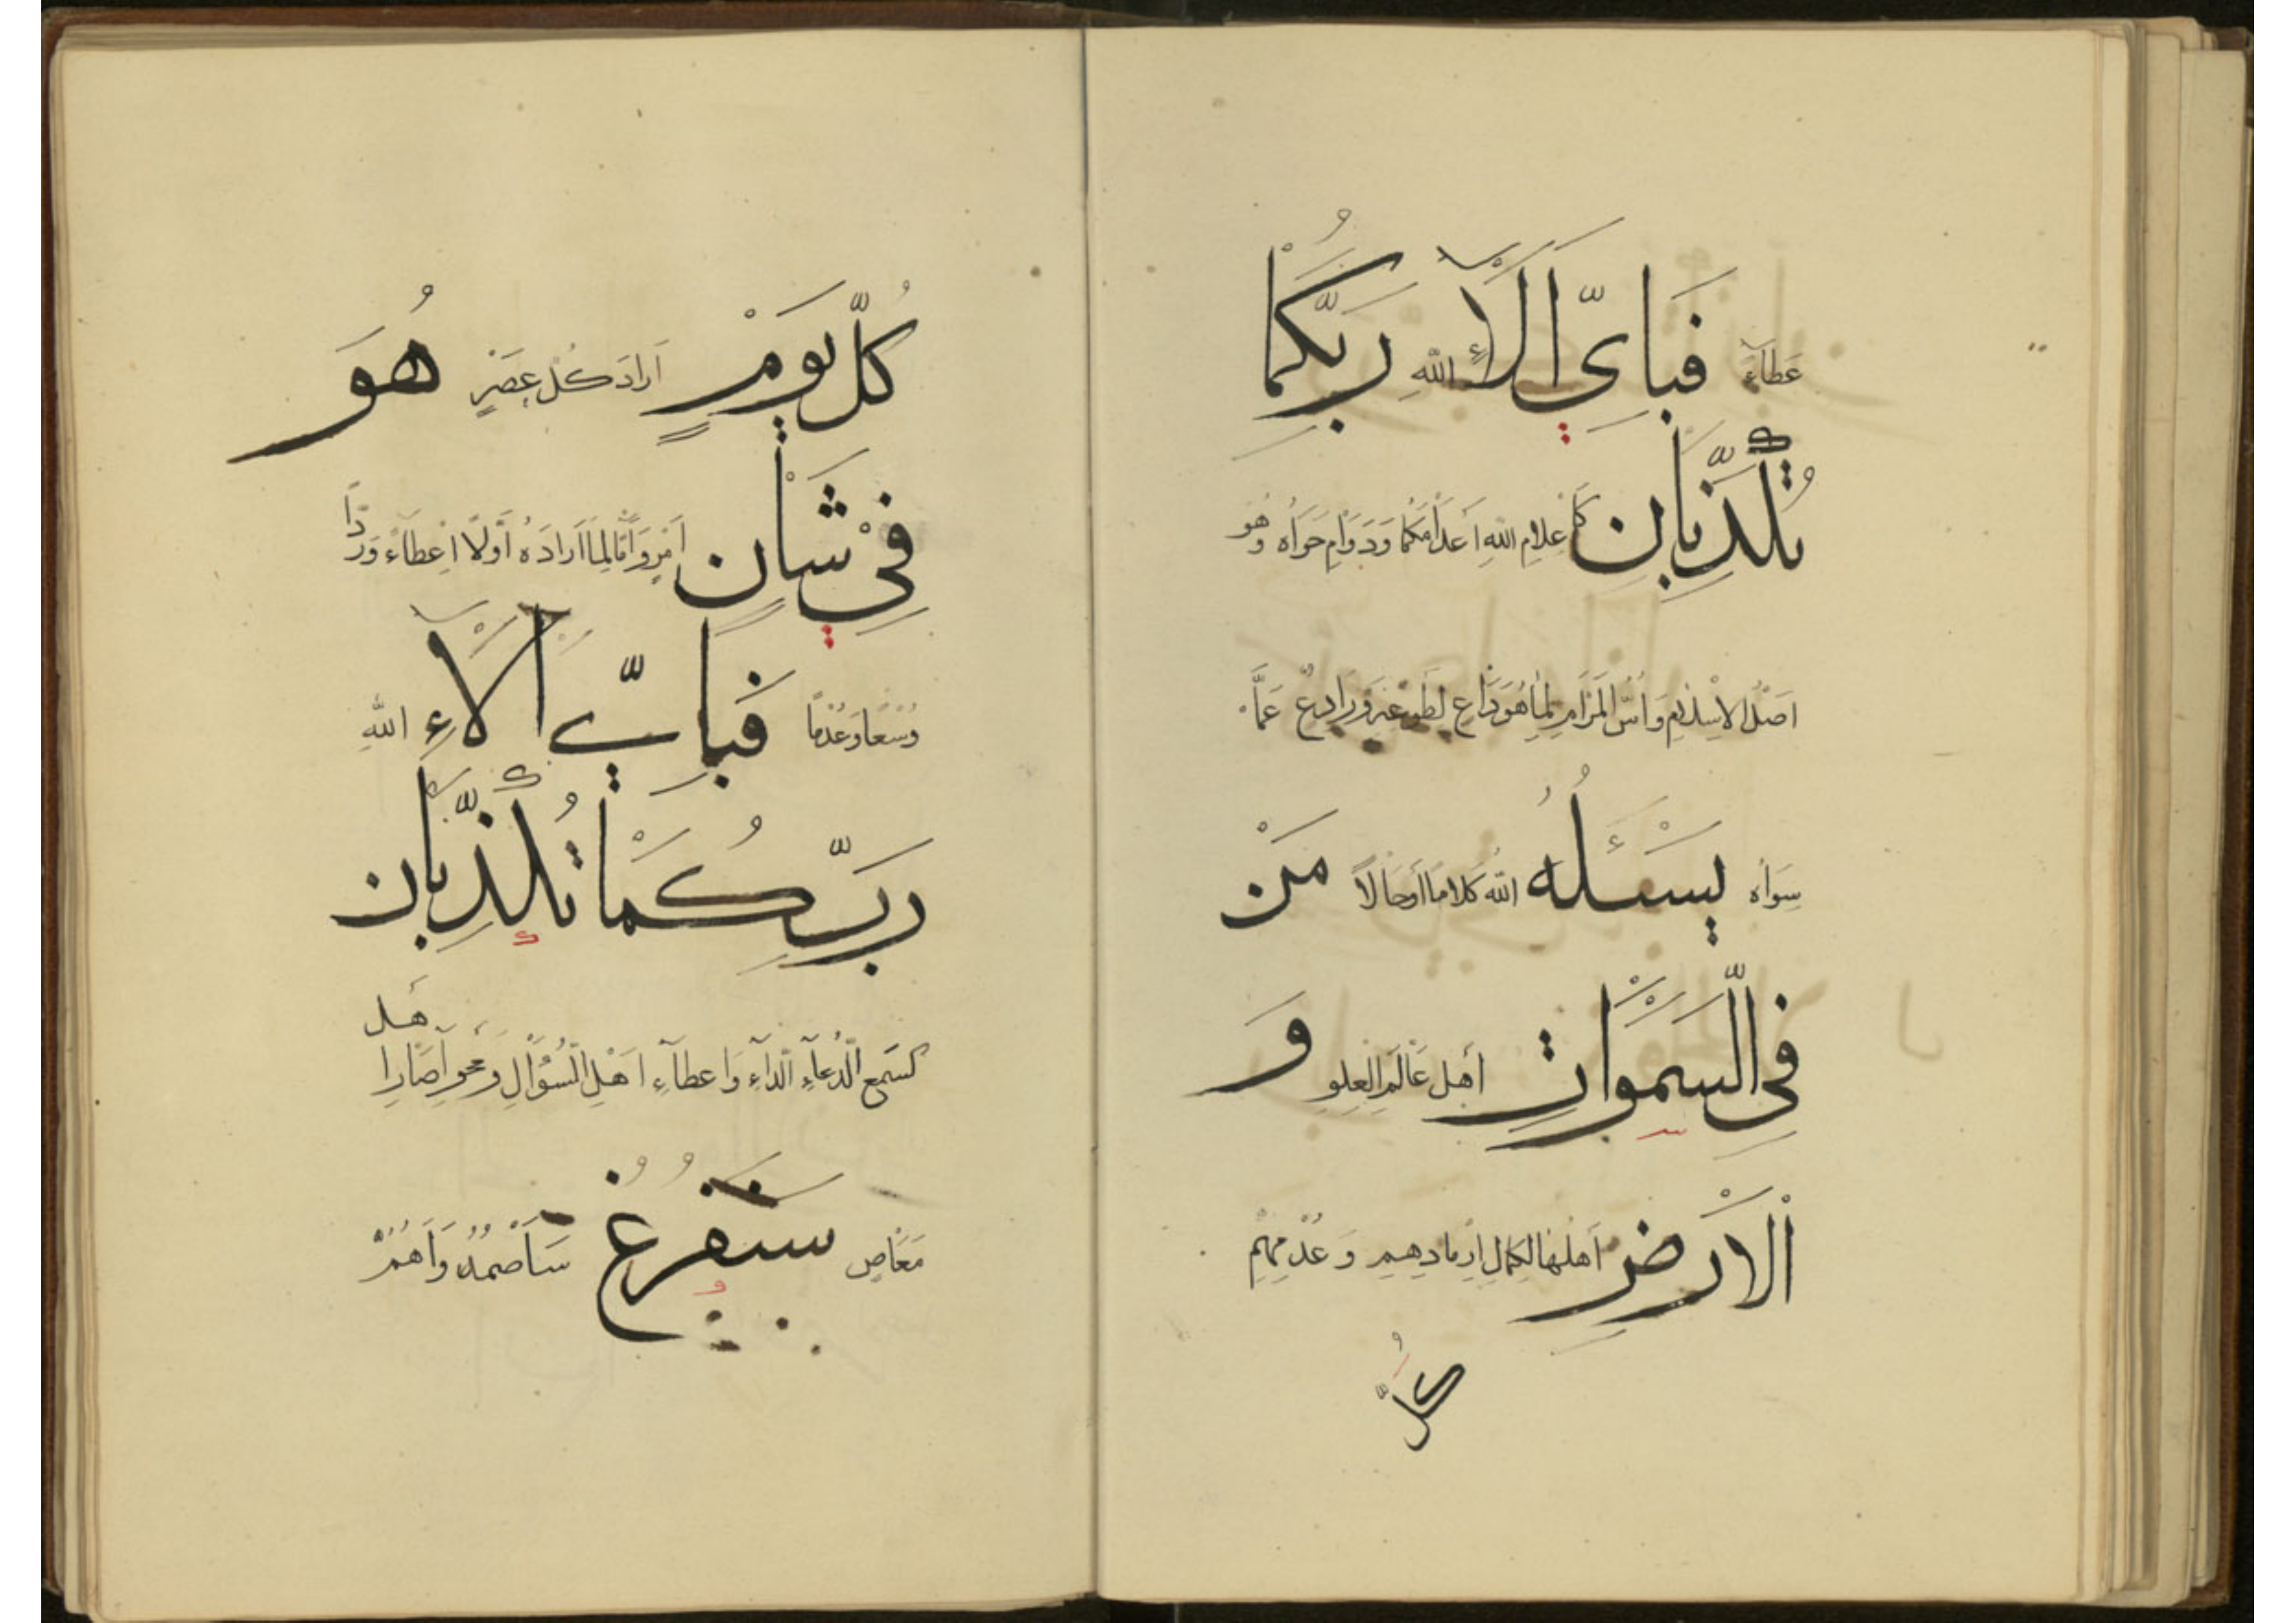 عَطَآءَ فَبِاَيِّ اٰلَآءِ اللّٰهِ رَبِّكُمَا
تُكَذِّبَانِ كَاِعْلَامِ اللّٰهِ اَعْدَامَكُمَا وَدَوَامِ حَوَاهُ وَهُوَ
اَصْلُ الْاِسْلَامِ وَاُسُّ الْمَرَامِ لِمَا هُوَ دَاعٍ لِطَوْعِهٖ وَرَادِعٌ عَمَّا
سِوَاهُ يَسْئَلُهُ اللّٰهَ كَلَامًا اَوْ حَالًا مَنْ
فِي السَّمٰوَاتِ أَهْلُ عَالَمِ الْعِلْوِ وَ
الْاَرْضِ اَهْلُهَا لِكَمَالِ اِرْمَادِهِمْ وَعُدْمِهِمْ
كُلَّ
كُلَّ يَوْمٍ اَرَادَ كُلَّ عَصْرٍ هُوَ
فِيْ شَاْنٍ اَمْرٍ وَاَمَّا لِمَا اَرَادَهُ اَوَّلًا اِعْطَآءً وَرَدًّا
وُسْعًا وَعُدْمًا فَبِاَيِّ اٰلَآءِ اللّٰهِ
رَبِّكُمَا تُكَذِّبَانِ
كَسَمْعِ الدُّعَآءِ وَاِعْطَآءِ اَهْلِ السُّؤَالِ وَمَحْوِ اٰصَارِ اَهْلِ
مَعَاصٍ سَنَفْرُغُ سَأَصْمُدُ وَاَهُمُّ